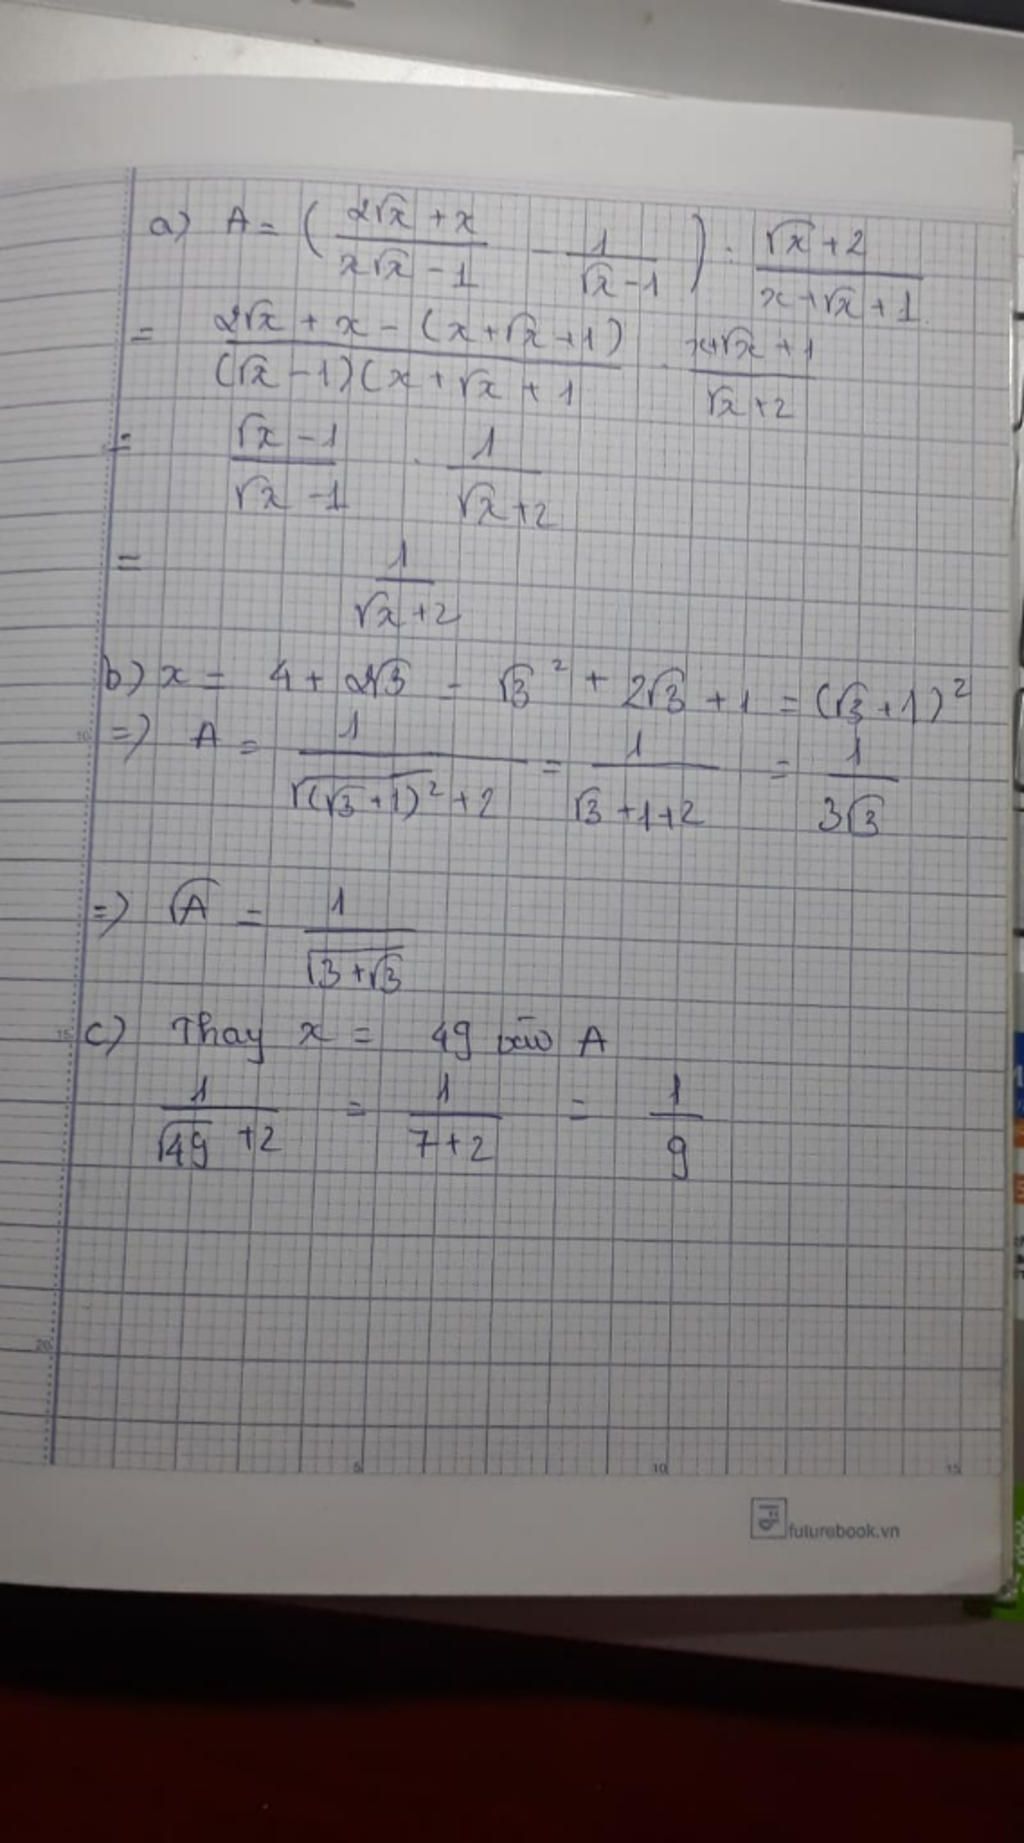 a) A = ( (2√x + x)/(x√x - 1) - 1/(√x - 1) ) : (√x + 2)/(x + √x + 1)
= (2√x + x - (x + √x + 1))/((√x - 1)(x + √x + 1) . (x + √x + 1)/(√x + 2)
= (√x - 1)/(√x - 1) . 1/(√x + 2)
= 1/(√x + 2)
b) x = 4 + 2√3 = √3² + 2√3 + 1 = (√3 + 1)²
=) A = 1/(√((√3 + 1)²) + 2) = 1/(√3 + 1 + 2) = 1/(3√3)
=) √A = 1/√(3 + √3)
c) Thay x = 49 vào A
1/(√49 + 2) = 1/(7 + 2) = 1/9
10
15
20
5 10 15
futurebook.vn